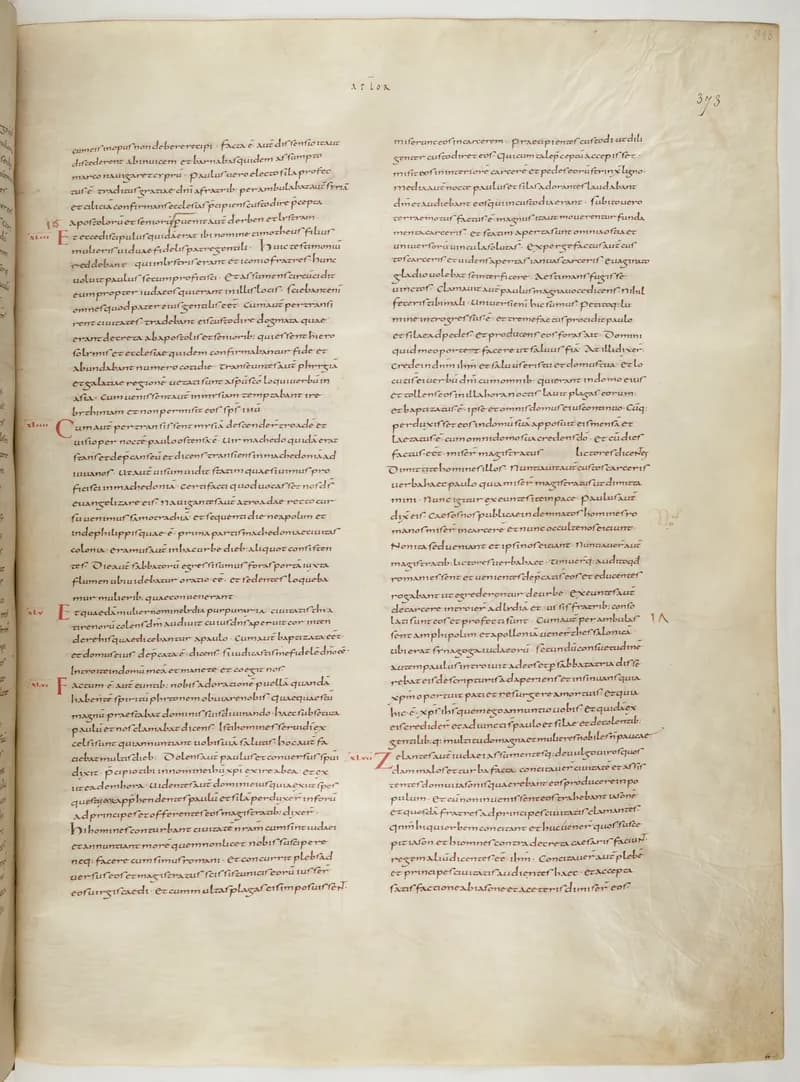 ACTƱŪ APŁOR
373
cum eis in opus non debere recipi · Facta ē aut̄ dissensio ita ut
discederent ab inuicem et barnabas quidem assumpto
marco nauigaret cyprū · Paulus uero electo sila profec
tus ē · traditus gratiae dn̄i a fratrib; perambulabat aut̄ syriā
et ciliciā confirmans ecclesias praecipiens custodire p̄cepta
apostolorū et seniorū · peruenit aut̄ derben et lystram
16
xLiii Et ecce discipulus quidā erat ibi nomine timotheus filius
mulieris uiduae fidelis patre gentili · huic testimoniū
reddebant · qui in lystris erant et iconio fratres hunc
uoluit paulus secum proficisci · Et assumens circūcidit
eum propter iudaeos qui erant in illis locis · sciebant eni
omnes quod pater eius gentilis eēt · Cum aut̄ pertransi
rent ciuitates tradebant eis custodire dogmata quae
erant decreta ab apostolis et seniorib; qui essent hiero
solymis et ecclesiae quidem confirmabantur fide et
abundabant numero cotidie · Transeuntes aut̄ phrygiā
et galatiae regionē uetati sunt a sp̄u sc̄o loqui uerbū in
asia · Cum uenissent aut̄ in mysiam temptabant ire
bithyniam et non permisit eos sp̄s ih̄u
xLiiii Cum aut̄ pertransissent mysiā descenderꝫ troadē et
uisio per noctē paulo ostensa ē · Uir machedo quidā erat
stans et dep̄cans eū et dicens transiens in machedoniā ad
iuua nos · Ut aut̄ uisum uidit statim quaesiuimus pro
ficisci in machedoniā · Certi facti quod uocasset nos d̄s
euangelizare eis · Nauigantes aut̄ a troade recto cur
su uenimus samothraciā et sequenti die neapolim et
inde philippis quae ē · prima partis machedoniae ciuitas
colonia · eramus aut̄ in hac urbe dieb; aliquot consisten
tes · Die aut̄ sabbatorū egressi sumus foras portā iuxta
flumen ubi uidebatur oratio eē · et sedentes loqueba
mur mulierib; quae conuenerant
xLv Et quaedā mulier nomine lydia purpuraria · ciuitatis thia
tirenorū colens dm̄ audiuit cuius dn̄s aperuit cor inten
dere his quae dicebantur a paulo · Cum aut̄ baptizata eēt
et domus eius dep̄cata ē dicens si iudicastis me fidelē dn̄o eē
Introite in domū meā et manete · et coegit nos
xLvi Factum ē aut̄ euntib; nobis ad orationē puellā quandā
habentē spiritū phytonem obuiare nobis quae quaestū
magnū praestabat dominis suis diuinando · haec subsecuta
paulū et nos clamabat dicens · Isti homines serui d̄i ex
celsi sunt qui annuntiant uobis uiā salutis hoc aut̄ fa
ciebat multis dieb; · Dolens aut̄ paulus et conuersus sp̄ui
dixit · p̄cipio tibi in nomine ih̄u xp̄i exire ab ea · et ex
iit eadem hora · Uidentes aut̄ domini eius quia exiit spes
quaestus app̄hendentes paulū et silā perduxerꝫ in forū
ad principes et offerentes eos magistratib; dixerꝫ
hi homines conturbant ciuitatē nr̄am cum sint iudaei
et annuntiant morē quem non licet nobis suscipere
neq; facere cum simus romani · Et concurrit plebs ad
uersus eos et magistratus scissis tunicis eorū iusserꝫ
eos uirgis caedi · Et cum multas plagas eis imposuissent
miserunt eos in carcerem · Praecipientes custodi ut dili
genter custodiret eos · Qui cum tale p̄ceptū accepisset ·
misit eos in interiorē carcerē et pedes eorū strinx̄ ligno ·
media aut̄ nocte paulus et silas adorantes laudabant
dm̄ et audiebant eos qui in custodia erant · Subito uero
terraemotus factus ē magnus ita ut mouerentur funda
menta carceris · et statim aperta sunt omnia ostia et
uniuersorū uincula soluta s̄ · Expergefactus aut̄ cus
tos carceris et uidens apertas ianuas carceris euaginato
gladio uolebat se interficere · Aestimans fugisse
uinctos · Clamauit aut̄ paulus magna uoce dicens · Nihil
feceris tibi mali · Uniuersi eni hic sumus · Petitoq; lu
mine introgressus ē · et tremefactus procidit paulo
et silae ad pedes · et producens eos foras ait · Domini
quid me oportet facere ut saluus fiā · At illi dixerꝫ
Crede in dnm̄ ih̄m et saluus eris tu et domus tua · Et lo
cuti s̄ ei uerbū dn̄i cum omnib; qui erant in domo eius
et tollens eos in illa hora noctis lauit plagas eorum ·
et baptizatus ē · ipse et omnis domus eius continuo · Cūq;
perduxisset eos in domū suā apposuit eis mensā et
laetatus ē · cum omni domo sua credens dō · et cū dies
factus eēt · miserꝫ magistratus lictores dicentes
Dimittite homines illos · Nuntiauit aut̄ custos carceris
uerba haec paulo quia miserꝫ magistratus ut dimitta
mini · Nunc igitur exeuntes ite in pace · Paulus aut̄
dix̄ eis · Caesos nos publicae indemnatos homines ro
manos miserꝫ in carcerē et nunc occulte nos eiciunt
Non ita sed ueniant et ipsi nos eiciant · Nuntiauerꝫ aut̄
magistratib; lictores uerba haec · timuerꝫq; audito qd
romani essent et uenientes dep̄cati s̄ eos et educentes
rogabant ut egrederentur de urbe · Exeuntes aut̄
de carcere introierꝫ ad lydiā et uisis fratrib; conso
lati sunt eos et profecti sunt · Cum aut̄ perambulas
17
sent amphipolim et apolloniā uenerꝫ thessalonicā
ubi erat synagoga iudaeorū · secundū consuetudinē
autem paulus introiuit ad eos et p̄ sabbata tria disse
rebat eis de scripturis adaperiens et insinuans quia
xp̄m oportuit pati et resurgere a mortuis et quia
hic ē · xp̄s ih̄s quem ego annuntio uobis · et quidā ex
eis crediderꝫ et adiuncti s̄ paulo et silae et de colentib;
gentilib;q; multitudo magna et mulieres nobiles n̄ paucae
xLvii Zelantes aut̄ iudaei assumentesq; de uulgo uiros quos
dam malos et turba facta · concitauerꝫ ciuitatē et assis
tentes domui iasonis quaerebant eos producere in po
pulum · Et cū non inuenissent eos trahebant iasonē
et quosdā fratres ad principes ciuitatis clamantes
qnm̄ hi qui urbem concitant et huc uenerꝫ quos susce
pit iason et hi omnes contra decreta caesaris faciunt
regem aliū dicentes eē · ih̄m · Concitauerꝫ aut̄ plebē
et principes ciuitatis audientes haec · Et accepta
satisfactione ab iasone et a ceteris dimiserꝫ eos